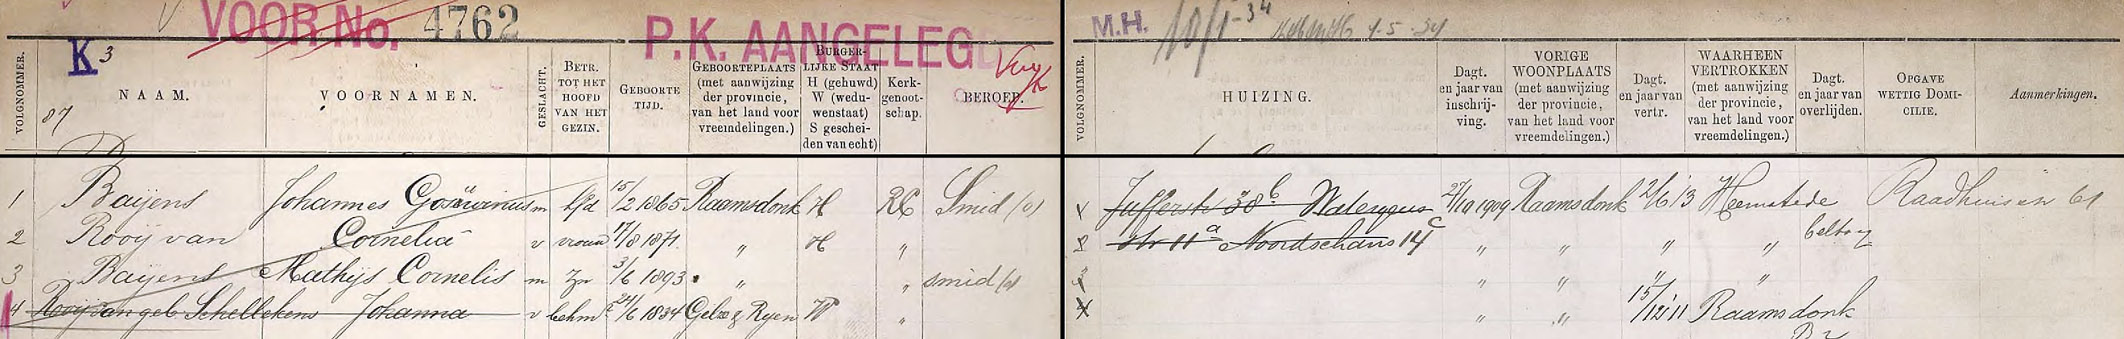 VOOR No. 4762
P.K. AANGELEG
M.H. 10/1-34 4-5-34
K 3
87
VOLGNOMMER.
NAAM.
VOORNAMEN.
GESLACHT.
BETR. TOT HET HOOFD VAN HET GEZIN.
GEBOORTE TIJD.
GEBOORTEPLAATS (met aanwijzing der provincie, van het land voor vreemdelingen.)
BURGERLIJKE STAAT H (gehuwd) W (weduwenstaat) S gescheiden van echt)
Kerkgenootschap.
BEROEP.
VOLGNOMMER.
HUIZING.
Dagt. en jaar van inschrijving.
VORIGE WOONPLAATS (met aanwijzing der provincie, van het land voor vreemdelingen.)
Dagt. en jaar van vertr.
WAARHEEN VERTROKKEN (met aanwijzing der provincie, van het land voor vreemdelingen.)
Dagt. en jaar van overlijden.
OPGAVE WETTIG DOMICILIE.
Aanmerkingen.
1 Baijens Johannes Goswinus m hfd 15/2 1865 Raamsdonk H RC Smid (o) Jufferstr 38b 27/10 1909 Raamsdonk 2/6 13 Heemstede Raadhuis in 61
2 Rooij van Cornelia v vrouw 17/8 1871 " H " str 11a Noordschans 14c " " " "
3 Baijens Mathijs Cornelis m zn 3/6 1893 " " smid (o) " " " "
4 Rooij van geb Schellekens Johanna v behm 24/6 1834 Gelze & Ryen W " " " 15/12 '11 Raamsdonk